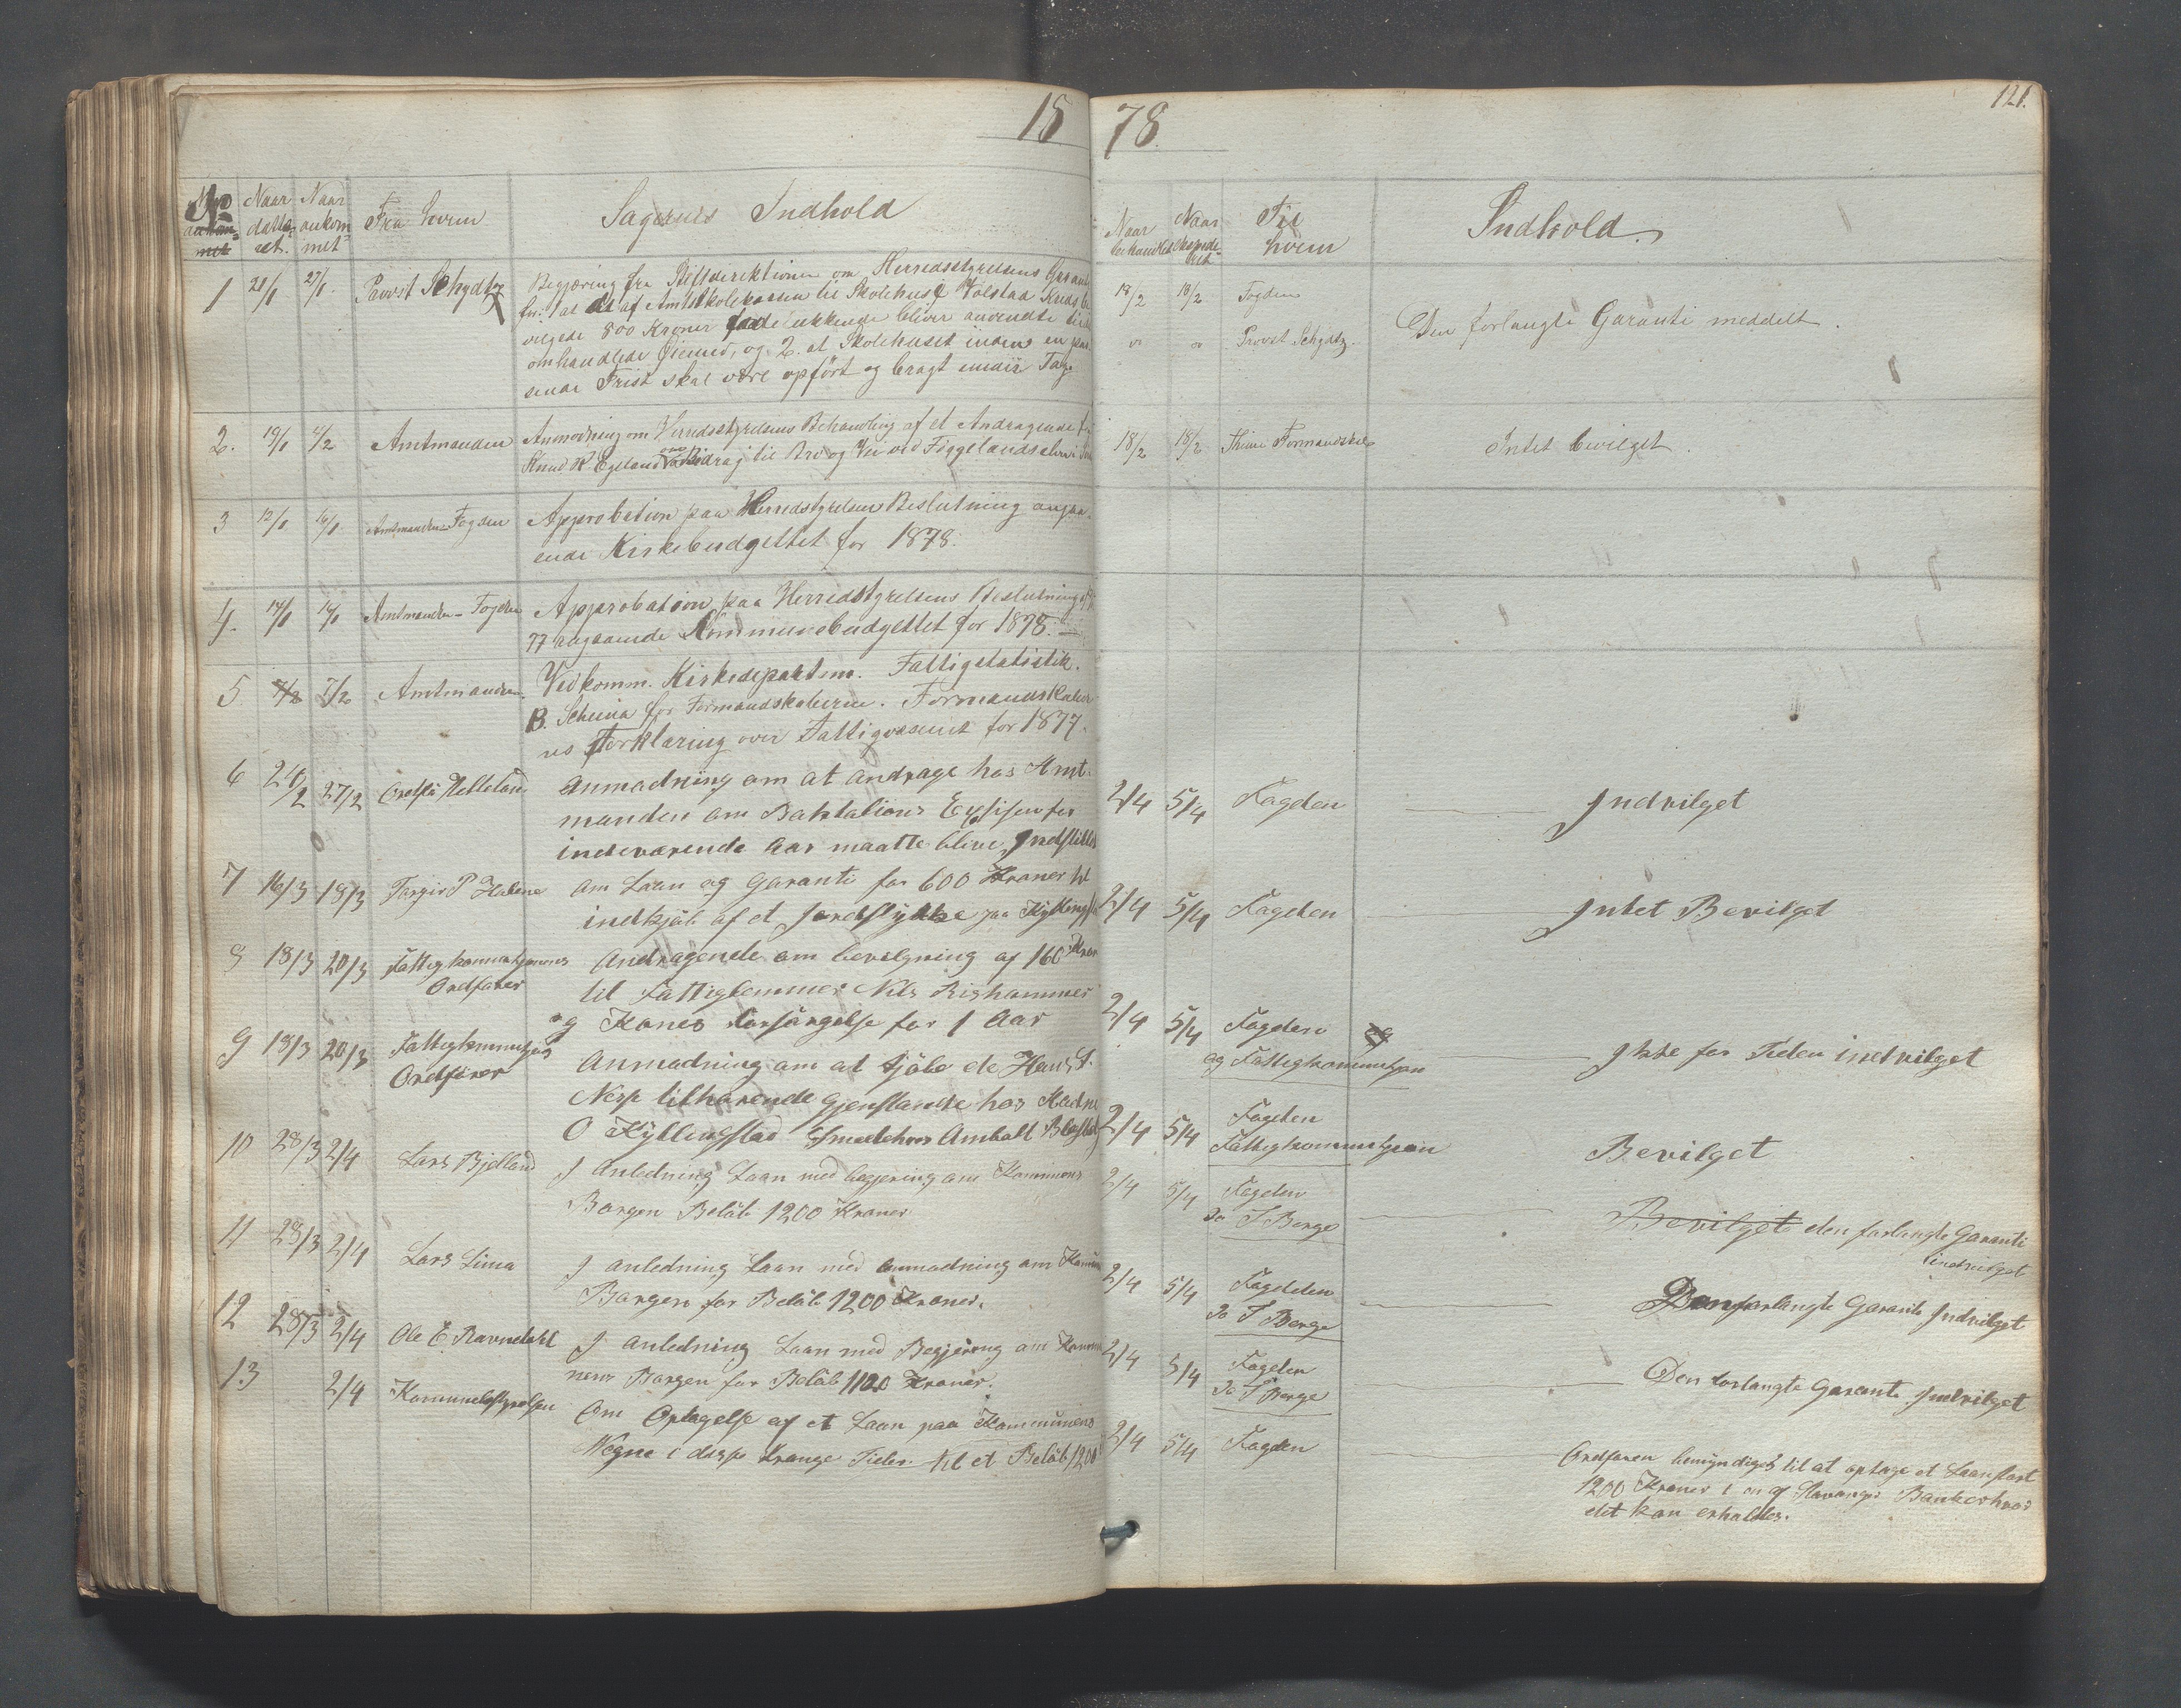 18
No
Naar dateret.
Naar ankommet
Fra hvem
Sagernes Indhold
1 21/1 27/1. Provst Schydtz
Begjæring fra Stiftsdirektionen om Herredsstyrelsens Garanti
for: 1 at det af Amtsskolekassen til Skolehus
800 Kroner bliver anvendte
omhandlede Øiemed, og 2. at Skolehuset inden en
Frist skal være opført og bragt under Tag
2. 19/1 4/2 Amtmanden
Anmodning om Herredsstyrelsens Behandling af et Andragende
Knud R Egeland om Bidrag til Bro og Vei ved Figgelandselven
3 12/1 16/1 Amtmanden Fogden
Approbation paa Herredsstyrelsens Beslutning angaa-
ende Kirkebudgettet for 1878.
4. 14/1 16/1 Amtmanden - Fogden
Approbation paa Herredsstyrelsens Beslutning
77 angaaende Kommunebudgettet for 1878.
5 7/2 Amtmanden.
Vedkomm. Kirkedepartem. Fattigstatistik.
B. Schema for Formandskaberne. Formandskaber-
nes Forklaring over Fattigvæsenet for 1877.
6 24/2 27/2
Anmodning om at andrage hos Amt-
manden om
indeværende Aar maatte blive Indstillet
7 16/3 18/3 Torger P
Om Laan og Garanti for 600 Kroner til
indkjøb af et Jordstykke paa
8 18/3 20/3 Fattigkommisjonens
Ordfører
Andragende om bevilgning af 160 Kron
til Fattiglemmer Nils Rishammer
og Kones forsørgelse for 1 Aar
9 18/3 20/3 Fattigkommisjons
Ordfører
Anmodning om at kjøbe de Hans
tilhørende Gjenstande hos
O Kyllingstad
10 28/3 2/4 Lars Bjelland
I Anledning Laan med begjering om Kommunens
Borgen Beløb 1200 Kroner
11 28/3 2/4 Lars Lima
I anledning Laan med anmodning om
Borgen for Beløb 1200 Kroner.
12 28/3 2/4 Ole E. Ravndahl
I anledning Laan med Begjering om Kommu
nens Borgen for Beløb Kroner.
13 2/4 Kommunebestyrelsen
Om Optagelse af et Laan paa Kommunens
Vegne i disse trange Tider til et Beløb 1200
78.
121.
Naar behandlet
Naar
Til hvem
Indhold.
18/2 18/2 Fogden
" " Provst Schydtz.
Den forlangte Garanti meddelt.
18/2 18/2 Formandskab
Intet bevilget.
2/4 5/4 Fogden Indvilget
2/4 5/4 Fogden Intet Bevilget
2/4 5/4 Fogden
og Fattigkommisjon
Ikke for Tiden indvilget
2/4 5/4 Fogden
Fattigkommisjonen
Bevilget
2/4 5/4 Fogden
Do T Berge
Bevilget den forlangte Garanti
indvilget
2/4 5/4 Fogden
Do T Berge
Den forlangte Garanti Indvilget
2/4 5/4 Fogden
Do T Berge
Den forlangte Garanti Indvilget
2/4 5/4 Fogden
Ordføren bemyndiges til at optage et Laan stort
1200 Kroner i en af Stavanger Banker hvor
det kan erholdes.